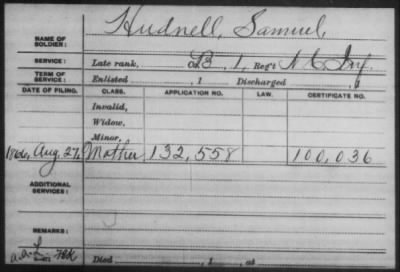 NAME OF SOLDIER: Hudnell, Samuel,
SERVICE: Late rank, Co. B, 1, Reg't N C Inf.
TERM OF SERVICE: Enlisted , 1 Discharged , 1
DATE OF FILING. CLASS. APPLICATION NO. LAW. CERTIFICATE NO.
Invalid,
Widow,
Minor,
1866, Aug. 27, Mother 132,558 100,036
ADDITIONAL SERVICES:
REMARKS:
Died , 1 , at